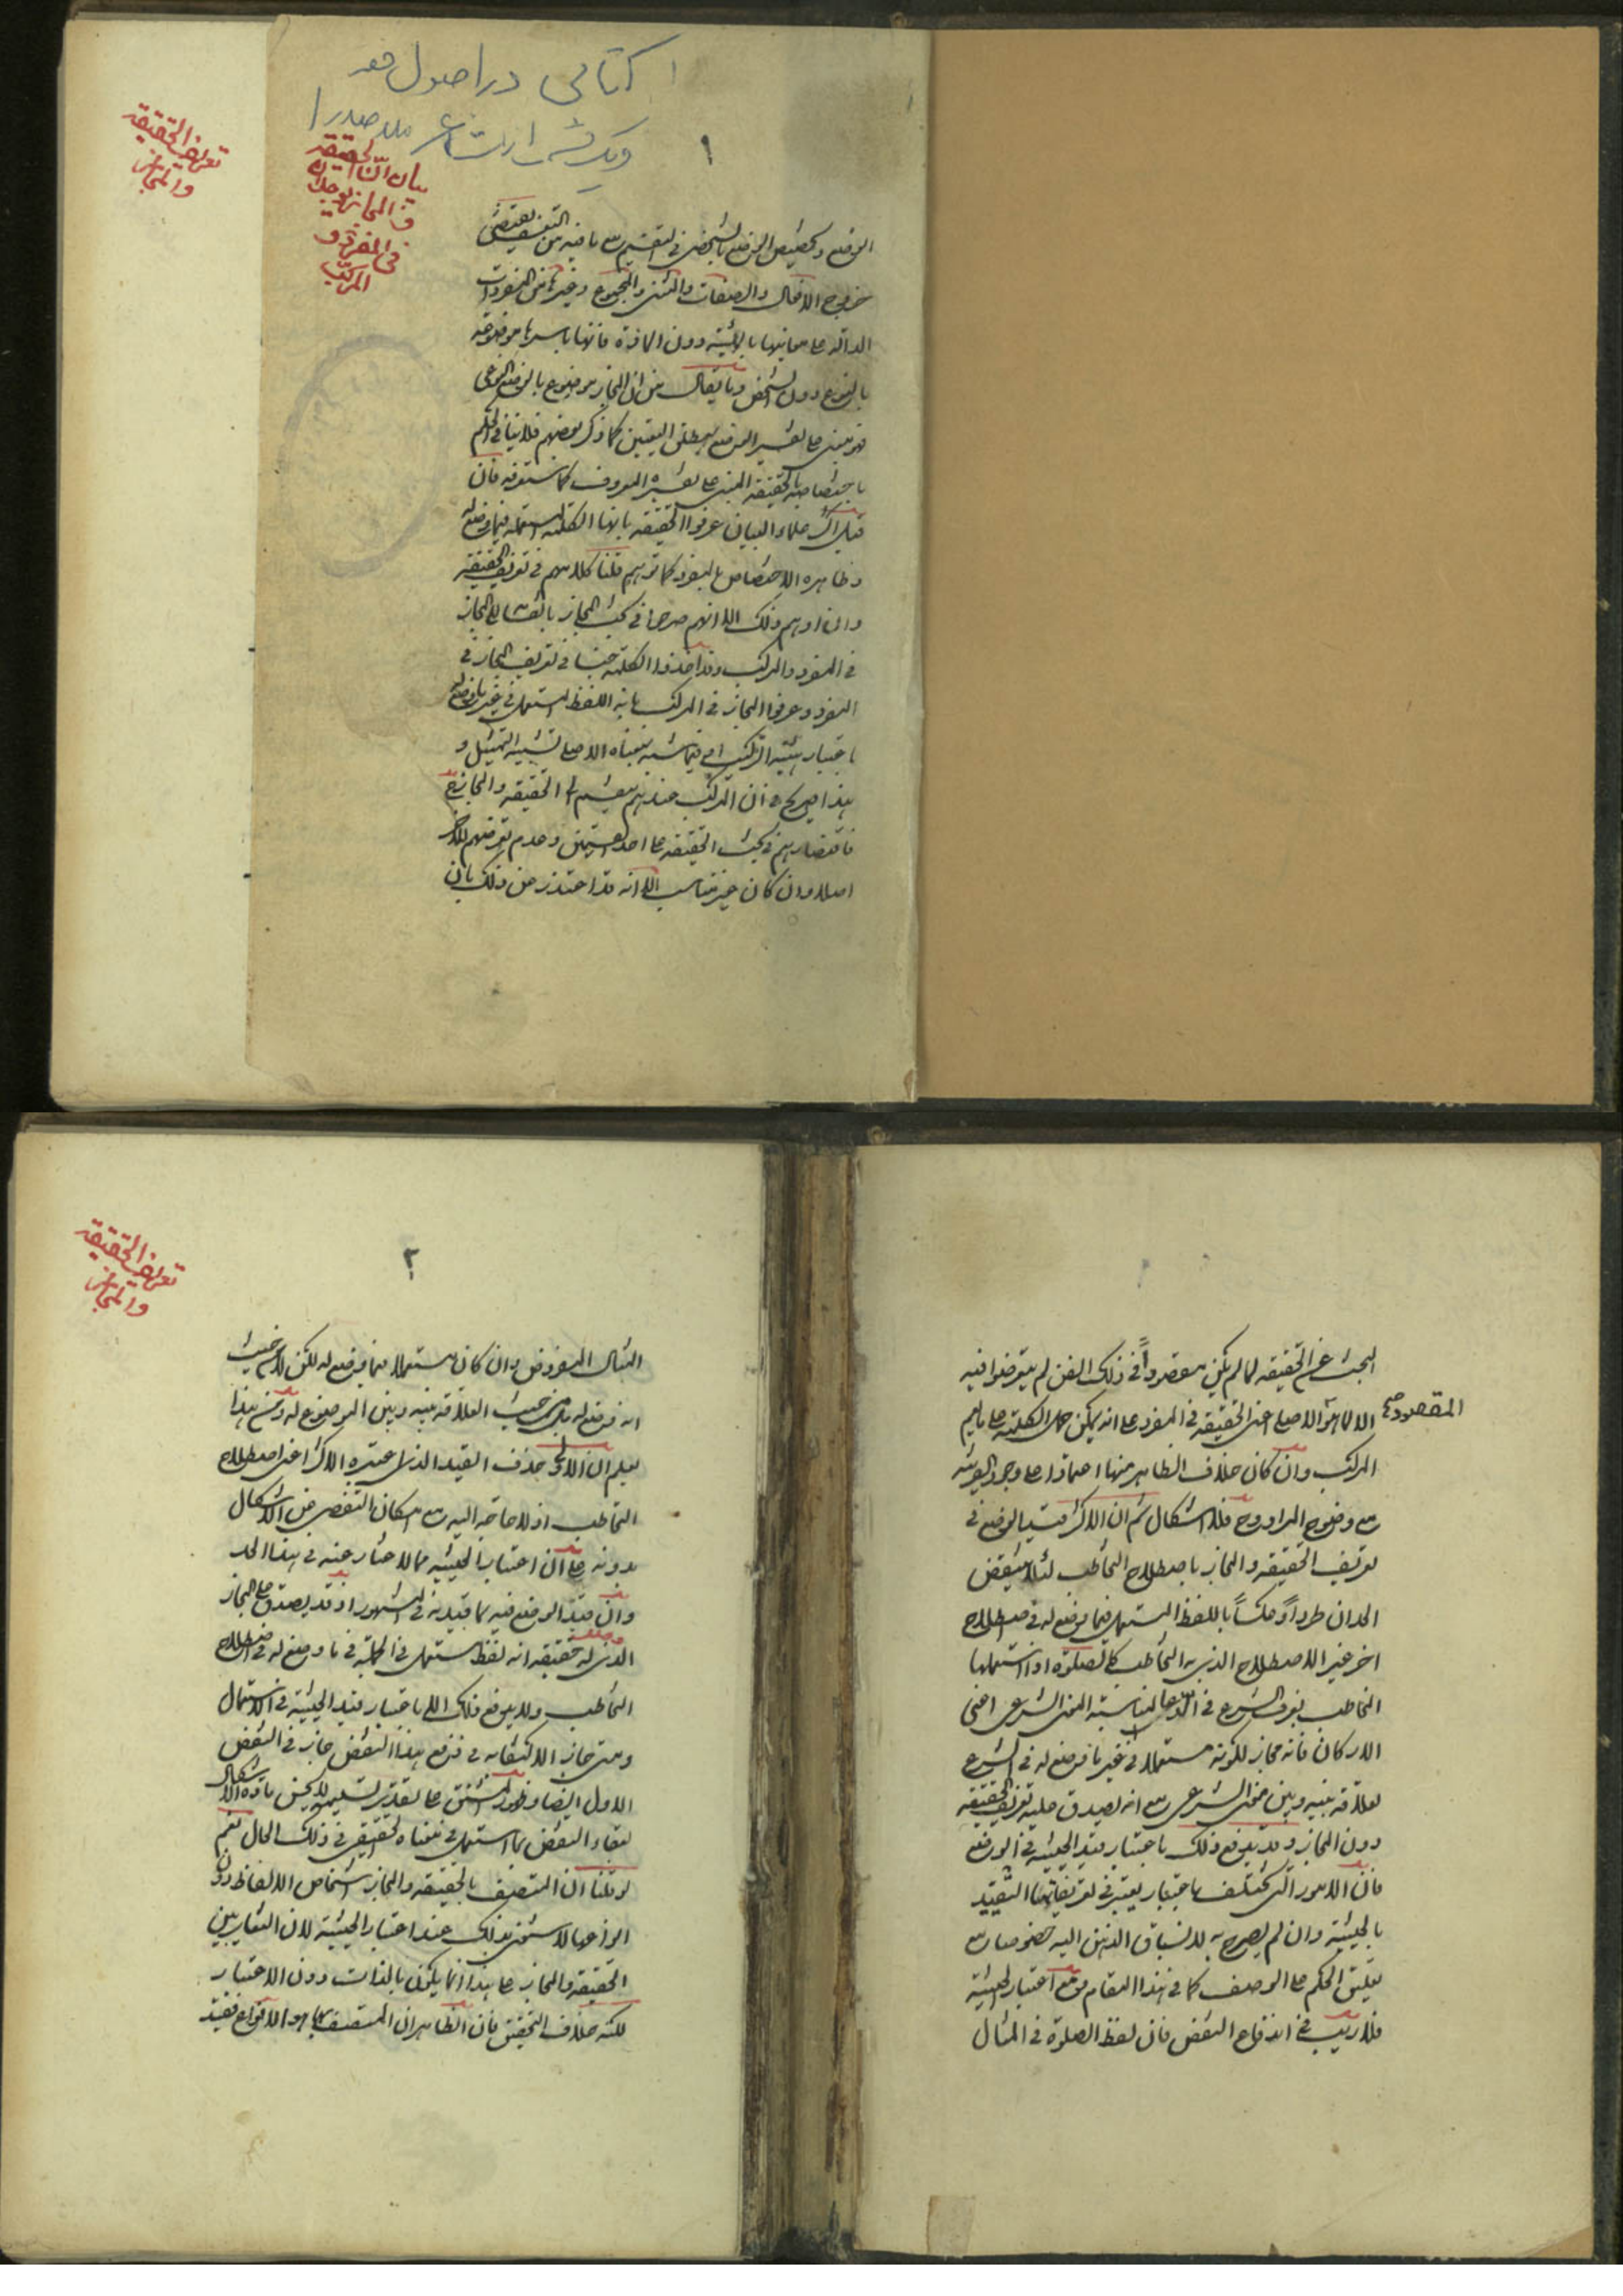 ۱ کتابی در اصول فقه
ویک شر از مشاعر ملا صدرا
۱
تعریف الحقیقة
والمجاز
بیان ان الحقیقة
والمجاز یوجدان
فی المفرد و
المرکب
الوضع وتخصیص الوضع بالشخصی فی التقسیم مع ما فیه من التعسف یقتضی
خروج الافعال والصفات والمثنی والمجموع وغیرها من المفردات
الدالة علی معانیها بالهیئة دون المادة فانها باسرها موضوعة
بالنوع دون الشخص وما یقال من ان المجاز موضوع بالوضع النوعی
فهو مبنی علی تفسیر الوضع بمطلق التعیین کما ذکره بعضهم فلا ینافی الحکم
باختصاصه بالحقیقة المبنی علی تفسیره المعروف کما ستعرفه فان
قیل اکثر علماء البیان عرفوا الحقیقة بانها الکلمة المستعملة فیما وضع له
وظاهره الاختصاص بالمفرد کما توهم قلنا کلامهم فی تعریف الحقیقة
وان اوهم ذلک الا انهم صرحوا فی بحث المجاز بانقسام المجاز
فی المفرد والمرکب وقد اخذوا الکلمة جنسا فی تعریف المجاز فی
المفرد وعرفوا المجاز فی المرکب بانه اللفظ المستعمل فی غیر ما وضع له
باعتبار هیئة الترکیب ای فیما شبه بمعناه الاصلی تشبیه التمثیل و
هذا صریح فی ان المرکب عندهم ینقسم الی الحقیقة والمجاز ح
فاقتصارهم فی بحث الحقیقة علی احد القسمین وعدم تعرضهم للاخر
اصلا وان کان غیر مناسب الا انه قد اعتذر عن ذلک بان
البحث عن الحقیقة لما لم یکن مقصوداً فی ذلک الفن لم یتعرضوا فیه
المقصود صح
الا لما هو الاصل اعنی الحقیقة فی المفرد علی انه یمکن حمل الکلمة علی ما یعم
المرکب وان کان خلاف الظاهر منها اعتمادا علی وجود القرینة
مع وضوح المراد وح فلا اشکال ثم ان الاکثر قید الوضع فی
تعریف الحقیقة والمجاز باصطلاح التخاطب لئلا ینتقض
الحدان طرداً وعکساً باللفظ المستعمل فیما وضع له فی اصطلاح
اخر غیر الاصطلاح الذی به التخاطب کالصلوة اذا استعملها
المخاطب بعرف الشرع فی الدعا لمناسبته المعنی الشرعی اعنی
الارکان فانه مجاز لکونه مستعملا فی غیر ما وضع له فی الشرع
لعلاقة بینه وبین معنی الشرعی مع انه یصدق علیه تعریف الحقیقة
دون المجاز وقد یدفع ذلک باعتبار قید الحیثیة فی الوضع
فان الامور التی تختلف باعتبار یعتبر فی تعریفاتها التقیید
بالحیثیة وان لم یصرح به لانسباق الذهن الیه خصوصا مع
تعلیق الحکم علی الوصف کما فی هذا المقام ومع اعتبار الحیثیة
فلا ریب فی اندفاع النقض فان لفظ الصلوة فی المثال
۲
تعریف الحقیقة
والمجاز
المثال المفروض وان کان مستعملا فیما وضع له لکن لا من حیث
انه وضع له بل من حیث العلاقة بینه وبین الموضوع له ومن هذا
یعلم ان الاولی حذف القید الذی اعتبره الاکثر اعنی اصطلاح
التخاطب اذ لا حاجة الیه مع امکان التفصی عن الاشکال
بدونه علی ان اعتبار الحیثیة مما لا عنه فی هذا الحد
وان قید الوضع فیه بما قید به فی المشهور اذ قد یصدق علی المجاز
الذی له حقیقة انه لفظ مستعمل فی الجملة فی ما وضع له فی اصطلاح
التخاطب ولا یدفع ذلک الا باعتبار قید الحیثیة فی الاستعمال
ومتی جاز الاکتفاء به فی دفع هذا النقض جاز فی النقض
الاول ایضا علی تقدیر تسلیمه مادة الاشکال
لبقاء النقض بما استعمل فی معناه الحقیقی فی ذلک الحال نعم
لو قلنا ان المتصف بالحقیقة والمجاز اشخاص الالفاظ دون
انواعها لاستغنی بذلک عند اعتبار الحیثیة لان التغایر بین
الحقیقة والمجاز علی هذا انما یکون بالذات دون الاعتبار
لکنه خلاف التحقیق فان الظاهر ان المتصف بهما هو الانواع فقید